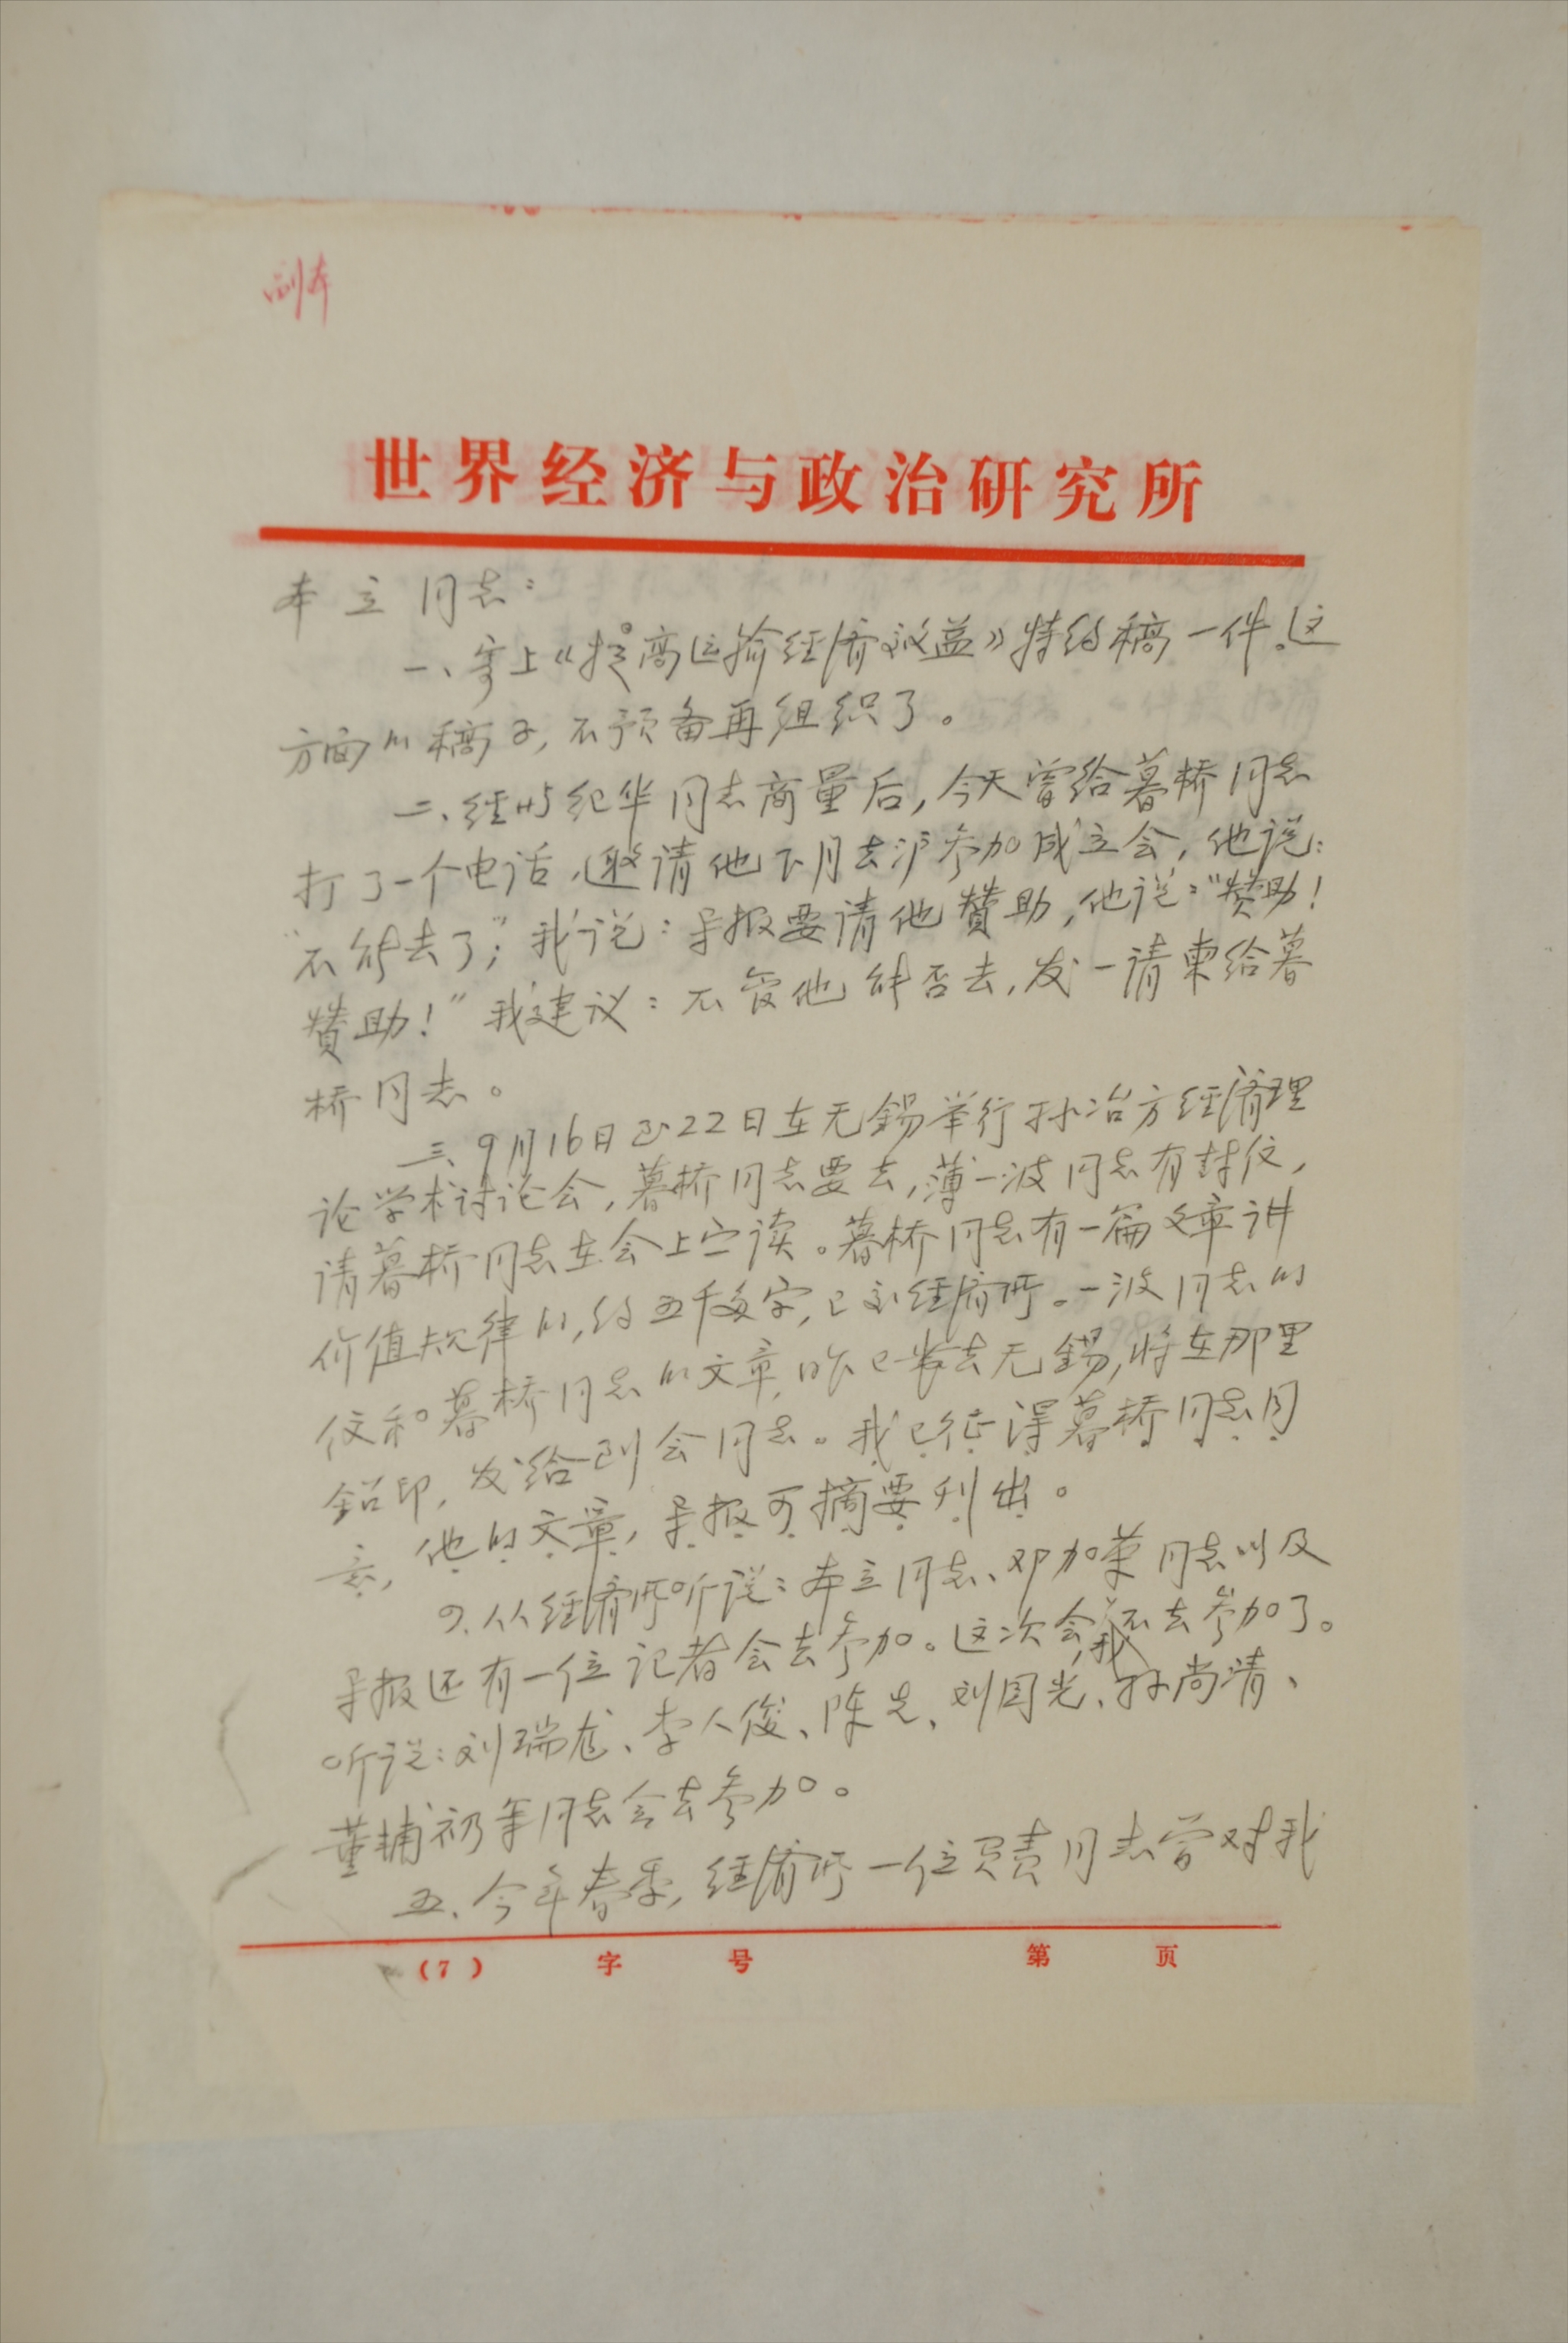 副本
世界经济与政治研究所
本立同志：
一、寄上《提高运输经济效益》特约稿一件。这
方面的稿子，不预备再组织了。
二、经与纪华同志商量后，今天曾给暮桥同志
打了一个电话，邀请他下月去沪参加成立会，他说：
“不能去了”；我说：导报要请他赞助，他说：“赞助！
赞助！”我建议：不管他能否去，发一请柬给暮
桥同志。
三、9月16日至22日在无锡举行孙冶方经济理
论学术讨论会，暮桥同志要去，薄一波同志有封信，
请暮桥同志在会上宣读。暮桥同志有一篇文章讲
价值规律的，约五千多字，已交经济所。一波同志的
信和暮桥同志的文章，昨已带去无锡，将在那里
铅印，发给到会同志。我已征得暮桥同志同
意，他的文章，导报可摘要刊出。
四、从经济所听说：本立同志、邓加荣同志以及
导报还有一位记者会去参加。这次会，我不去参加了。
听说：刘瑞龙、李人俊、陈先、刘国光、孙尚清、
董辅礽等同志会去参加。
五、今年春季，经济所一位负责同志曾对我
（7） 字 号 第 页